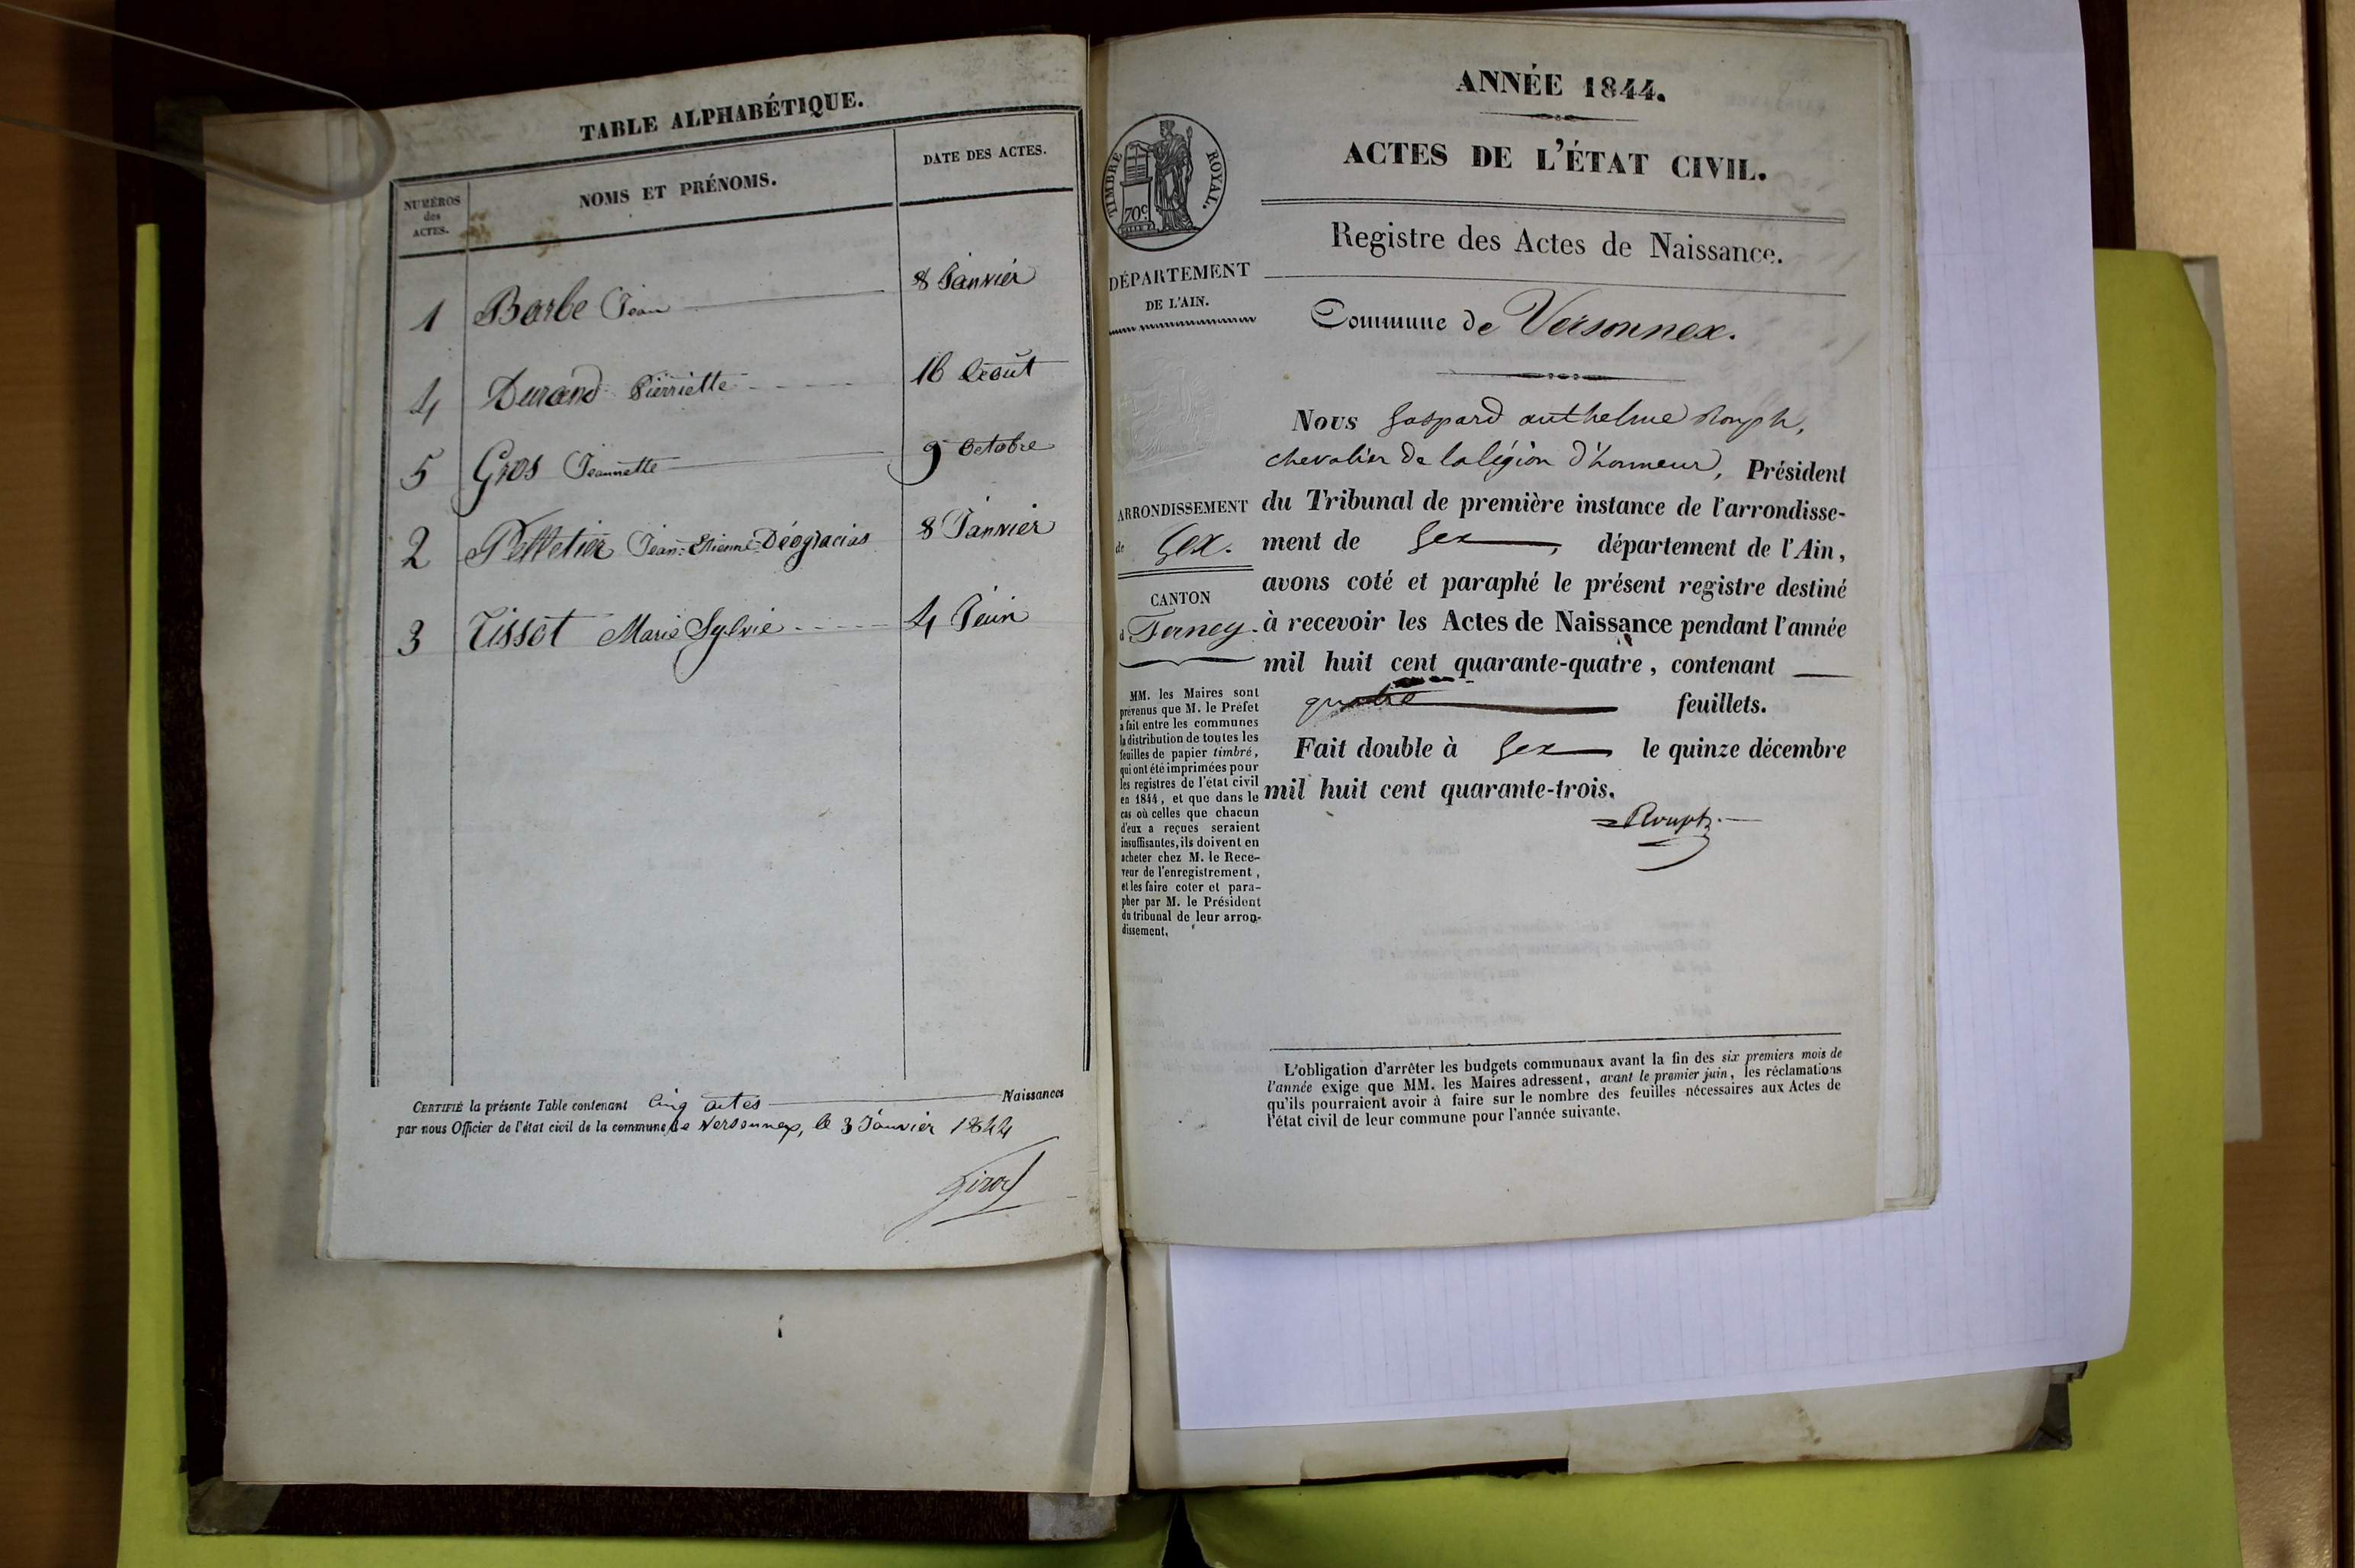 TABLE ALPHABÉTIQUE.
NUMÉROS
des
ACTES.
NOMS ET PRÉNOMS.
DATE DES ACTES.
1 Barbe Jean 8 Janvier
4 Durand Pierriette 16 Août
5 Gros Jeannette 9 Octobre
2 Pelletier Jean-Etienne-Déogracias 8 Janvier
3 Tissot Marie Sylvie 4 Juin
CERTIFIÉ la présente Table contenant Cinq actes Naissances
par nous Officier de l'état civil de la commune de Versonnex, le 3 Janvier 1844
ANNÉE 1844.
ACTES DE L'ÉTAT CIVIL.
Registre des Actes de Naissance.
Commune de Versonnex.
TIMBRE ROYAL.
70c
DÉPARTEMENT
DE L'AIN.
ARRONDISSEMENT
de Gex.
CANTON
d Ferney.
MM. les Maires sont
prévenus que M. le Préfet
a fait entre les communes
la distribution de toutes les
feuilles de papier timbré,
qui ont été imprimées pour
les registres de l'état civil
en 1844, et que dans le
cas où celles que chacun
d'eux a reçues seraient
insuffisantes, ils doivent en
acheter chez M. le Rece-
veur de l'enregistrement,
et les faire coter et para-
pher par M. le Président
du tribunal de leur arron-
dissement.
Nous Gaspard anthelme Rouph,
chevalier de la légion d'honneur, Président
du Tribunal de première instance de l'arrondisse-
ment de Gex, département de l'Ain,
avons coté et paraphé le présent registre destiné
à recevoir les Actes de Naissance pendant l'année
mil huit cent quarante-quatre, contenant
quatre feuillets.
Fait double à Gex le quinze décembre
mil huit cent quarante-trois.
Rouph
L'obligation d'arrêter les budgets communaux avant la fin des six premiers mois de
l'année exige que MM. les Maires adressent, avant le premier juin, les réclamations
qu'ils pourraient avoir à faire sur le nombre des feuilles nécessaires aux Actes de
l'état civil de leur commune pour l'année suivante.